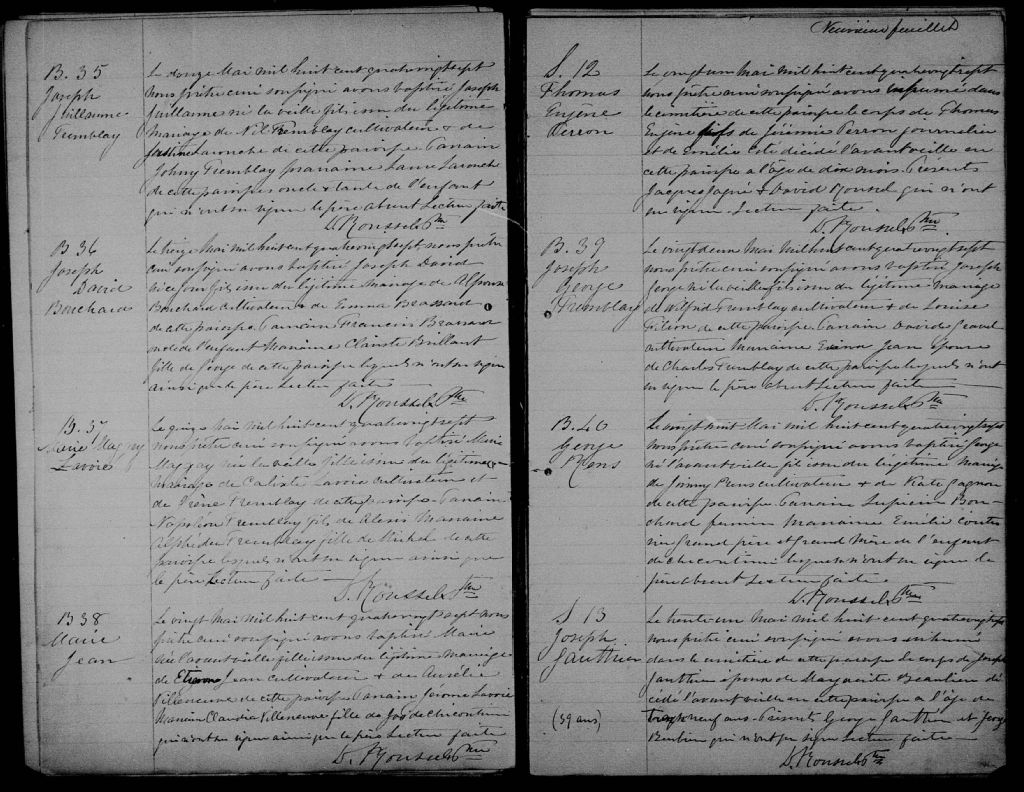 B. 35
Joseph
Guillaume
Tremblay
Le douze Mai mil huit cent quatrevingt sept
nous prêtre curé soussigné avons baptisé Joseph
Guillaume né la veille fils issu du légitime
Mariage de Nil Tremblay cultivateur & de
Justine Larouche de cette paroisse Parrain
Johny Tremblay marraine Laure Larouche
de cette paroisse oncle & tante de l'enfant
qui n'ont su signer le père absent Lecture faite
D. Roussel Ptre
B 36
Joseph
David
Bouchard
Le treize Mai mil huit cent quatrevingt sept nous prêtre
curé soussigné avons baptisé Joseph David
né ce jour fils issu du légitime Mariage de Alphonse
Bouchard cultivateur & de Emma Brassard
de cette paroisse. Parrain Francois Brassard
oncle de l'enfant Marraine Claire Brillant
fille de George de cette paroisse lesquels n'ont su signer
ainsi que le père Lecture faite
D. Roussel Ptre
B. 37
Marie
Lavoie
Le quinze Mai mil huit cent quatrevingt sept
nous prêtre curé soussigné avons baptisé Marie
née la veille fille issue du légitime
mariage de Calixte Lavoie cultivateur et
de Irène Tremblay de cette paroisse. Parrain
Napoléon Tremblay fils de Alexis Marraine
Tremblay fille de Michel de cette
paroisse lesquels n'ont su signer ainsi que
le père Lecture faite
D. Roussel Ptre
B 38
Marie
Jean
Le vingt Mai mil huit cent quatrevingt sept nous
prêtre curé soussigné avons baptisé Marie
née l'avant veille fille issue du légitime Mariage
de Jean cultivateur & de Aurélie
Villeneuve de cette paroisse Parrain Jérôme Lavoie
Marraine Claudia Villeneuve fille de Jos de Chicoutimi
qui n'ont su signer ainsi que le père Lecture faite
D. Roussel Ptre
Neuvième feuillet
S. 12
Thomas
Eugène
Perron
Le vingt un Mai mil huit cent quatrevingt sept
nous prêtre curé soussigné avons inhumé dans
le cimetière de cette paroisse le corps de Thomas
Eugène fils de Jérémie Perron journalier
et de Emilie Coté décédé l'avant veille en
cette paroisse à l'âge de dix mois. Présents
Jacques Gagné & David Roussel qui n'ont
su signer. Lecture faite.
D. Roussel Ptre
B. 39
Joseph
George
Tremblay
Le vingt deux Mai mil huit cent quatrevingt sept
nous prêtre curé soussigné avons baptisé Joseph
George né la veille fils issu du légitime mariage
de Wilfrid Tremblay cultivateur & de Louise
Filion de cette paroisse Parrain David Gravel
cultivateur Marraine Jean épouse
de Charles Tremblay de cette paroisse lesquels n'ont
su signer le père absent Lecture faite
D. Roussel Ptre
B. 40
George
Le vingt huit Mai mil huit cent quatrevingt sept
nous prêtre curé soussigné avons baptisé George
né l'avant veille fils issu du légitime mariage
de Johnny cultivateur & de Kate Gagnon
de cette paroisse Parrain Bou-
chard fermier Marraine Emilie
Grand père et grand Mère de l'enfant
de Chicoutimi lesquels n'ont su signer le
père absent Lecture faite.
D. Roussel Ptre
S 13
Joseph
Gauthier
(39 ans)
Le trente un Mai mil huit cent quatrevingt sept
nous prêtre curé soussigné avons inhumé
dans le cimetière de cette paroisse le corps de Joseph
Gauthier époux de Marguerite Beaulieu dé
cédé l'avant veille en cette paroisse à l'âge de
neuf ans. Présents George Gauthier et
qui n'ont su signer Lecture faite
D. Roussel Ptre